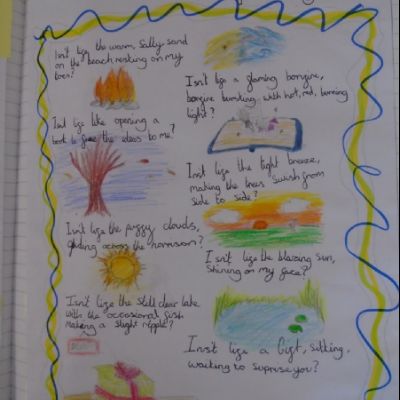 Isn't life the warm, salty sand
on the beach, resting on my
toes?
Isn't life a glaming bonfire,
bonfire bursting with hot, red, burning
light?
Isnt life like opening a
book to free the ideas to me?
Isn't life the light breeze,
making the trees swish from
side to side?
Isn't life the puffy clouds,
gliding across the horrison?
Isn't life the blazing sun,
Shining on my face?
Isn't life the still clear lake
with the occasional fish
making a slight ripple?
Isn't life a Gift, sitting,
waiting to suprise you?